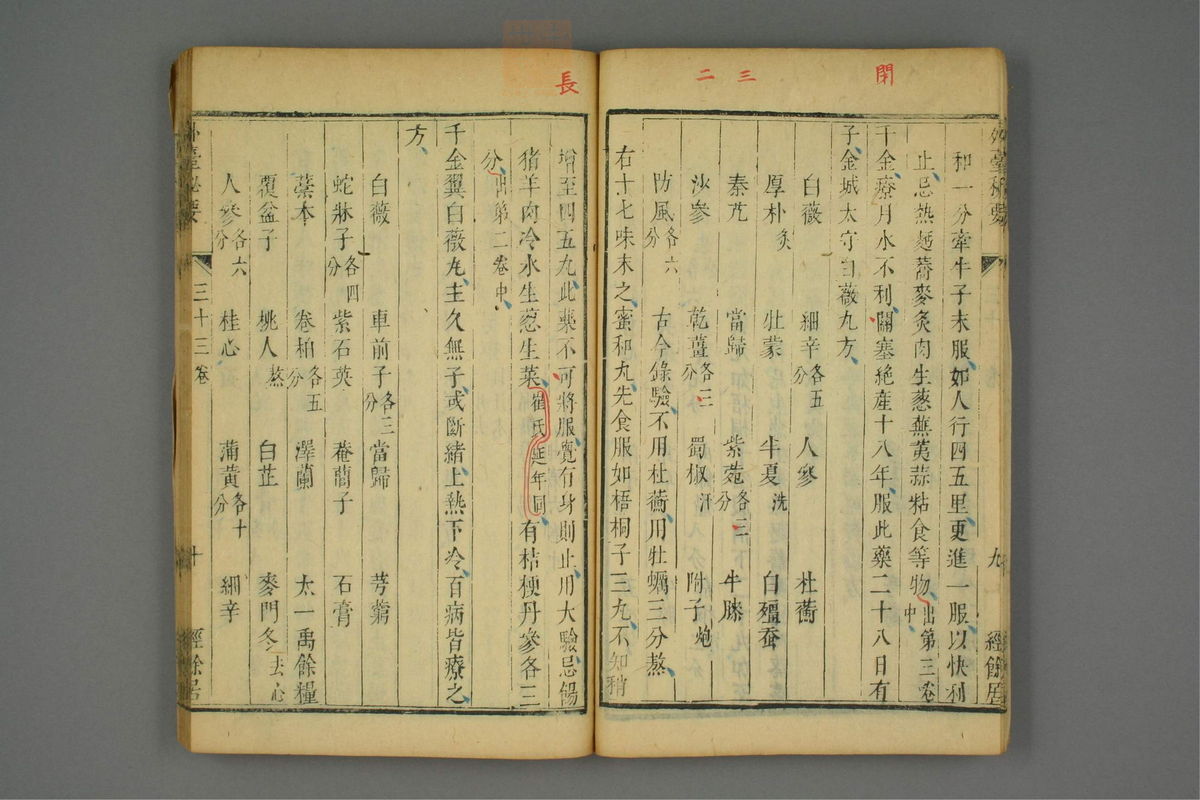 閉
三
二
和一分牽牛子末服如人行四五里更進一服以快利
止忌熱麵蕎麥炙肉生葱蕪荑蒜粘食等物出第三卷中
千金療月水不利關塞絶産十八年服此藥二十八日有
子金城太守白薇丸方
白薇 細辛各五分 人參 杜蘅
厚朴炙 牡蒙 半夏洗 白殭蚕
秦艽 當歸 紫菀各三分 牛膝
沙參 乾薑各三分 蜀椒汗 附子炮
防風各六分 古今錄驗不用杜蘅用牡蠣三分熬
右十七味末之蜜和丸先食服如梧桐子三丸不知稍
外臺秘要
九
經餘居
長
增至四五丸此藥不可將服覺有身則止用大驗忌餳
猪羊肉冷水生葱生菜崔氏延年同有桔梗丹參各三
分出第二卷中
千金翼白薇丸主久無子或斷緒上熱下冷百病皆療之
方
白薇 車前子各三分 當歸 芎藭
蛇牀子各四分 紫石英 菴䕡子 石膏
藁本 卷柏各五分 澤蘭 太一禹餘糧
覆盆子 桃人熬 白芷 麥門冬去心
人參各六分 桂心 蒲黃各十分 細辛
外臺秘要
三十三卷
十
經餘居